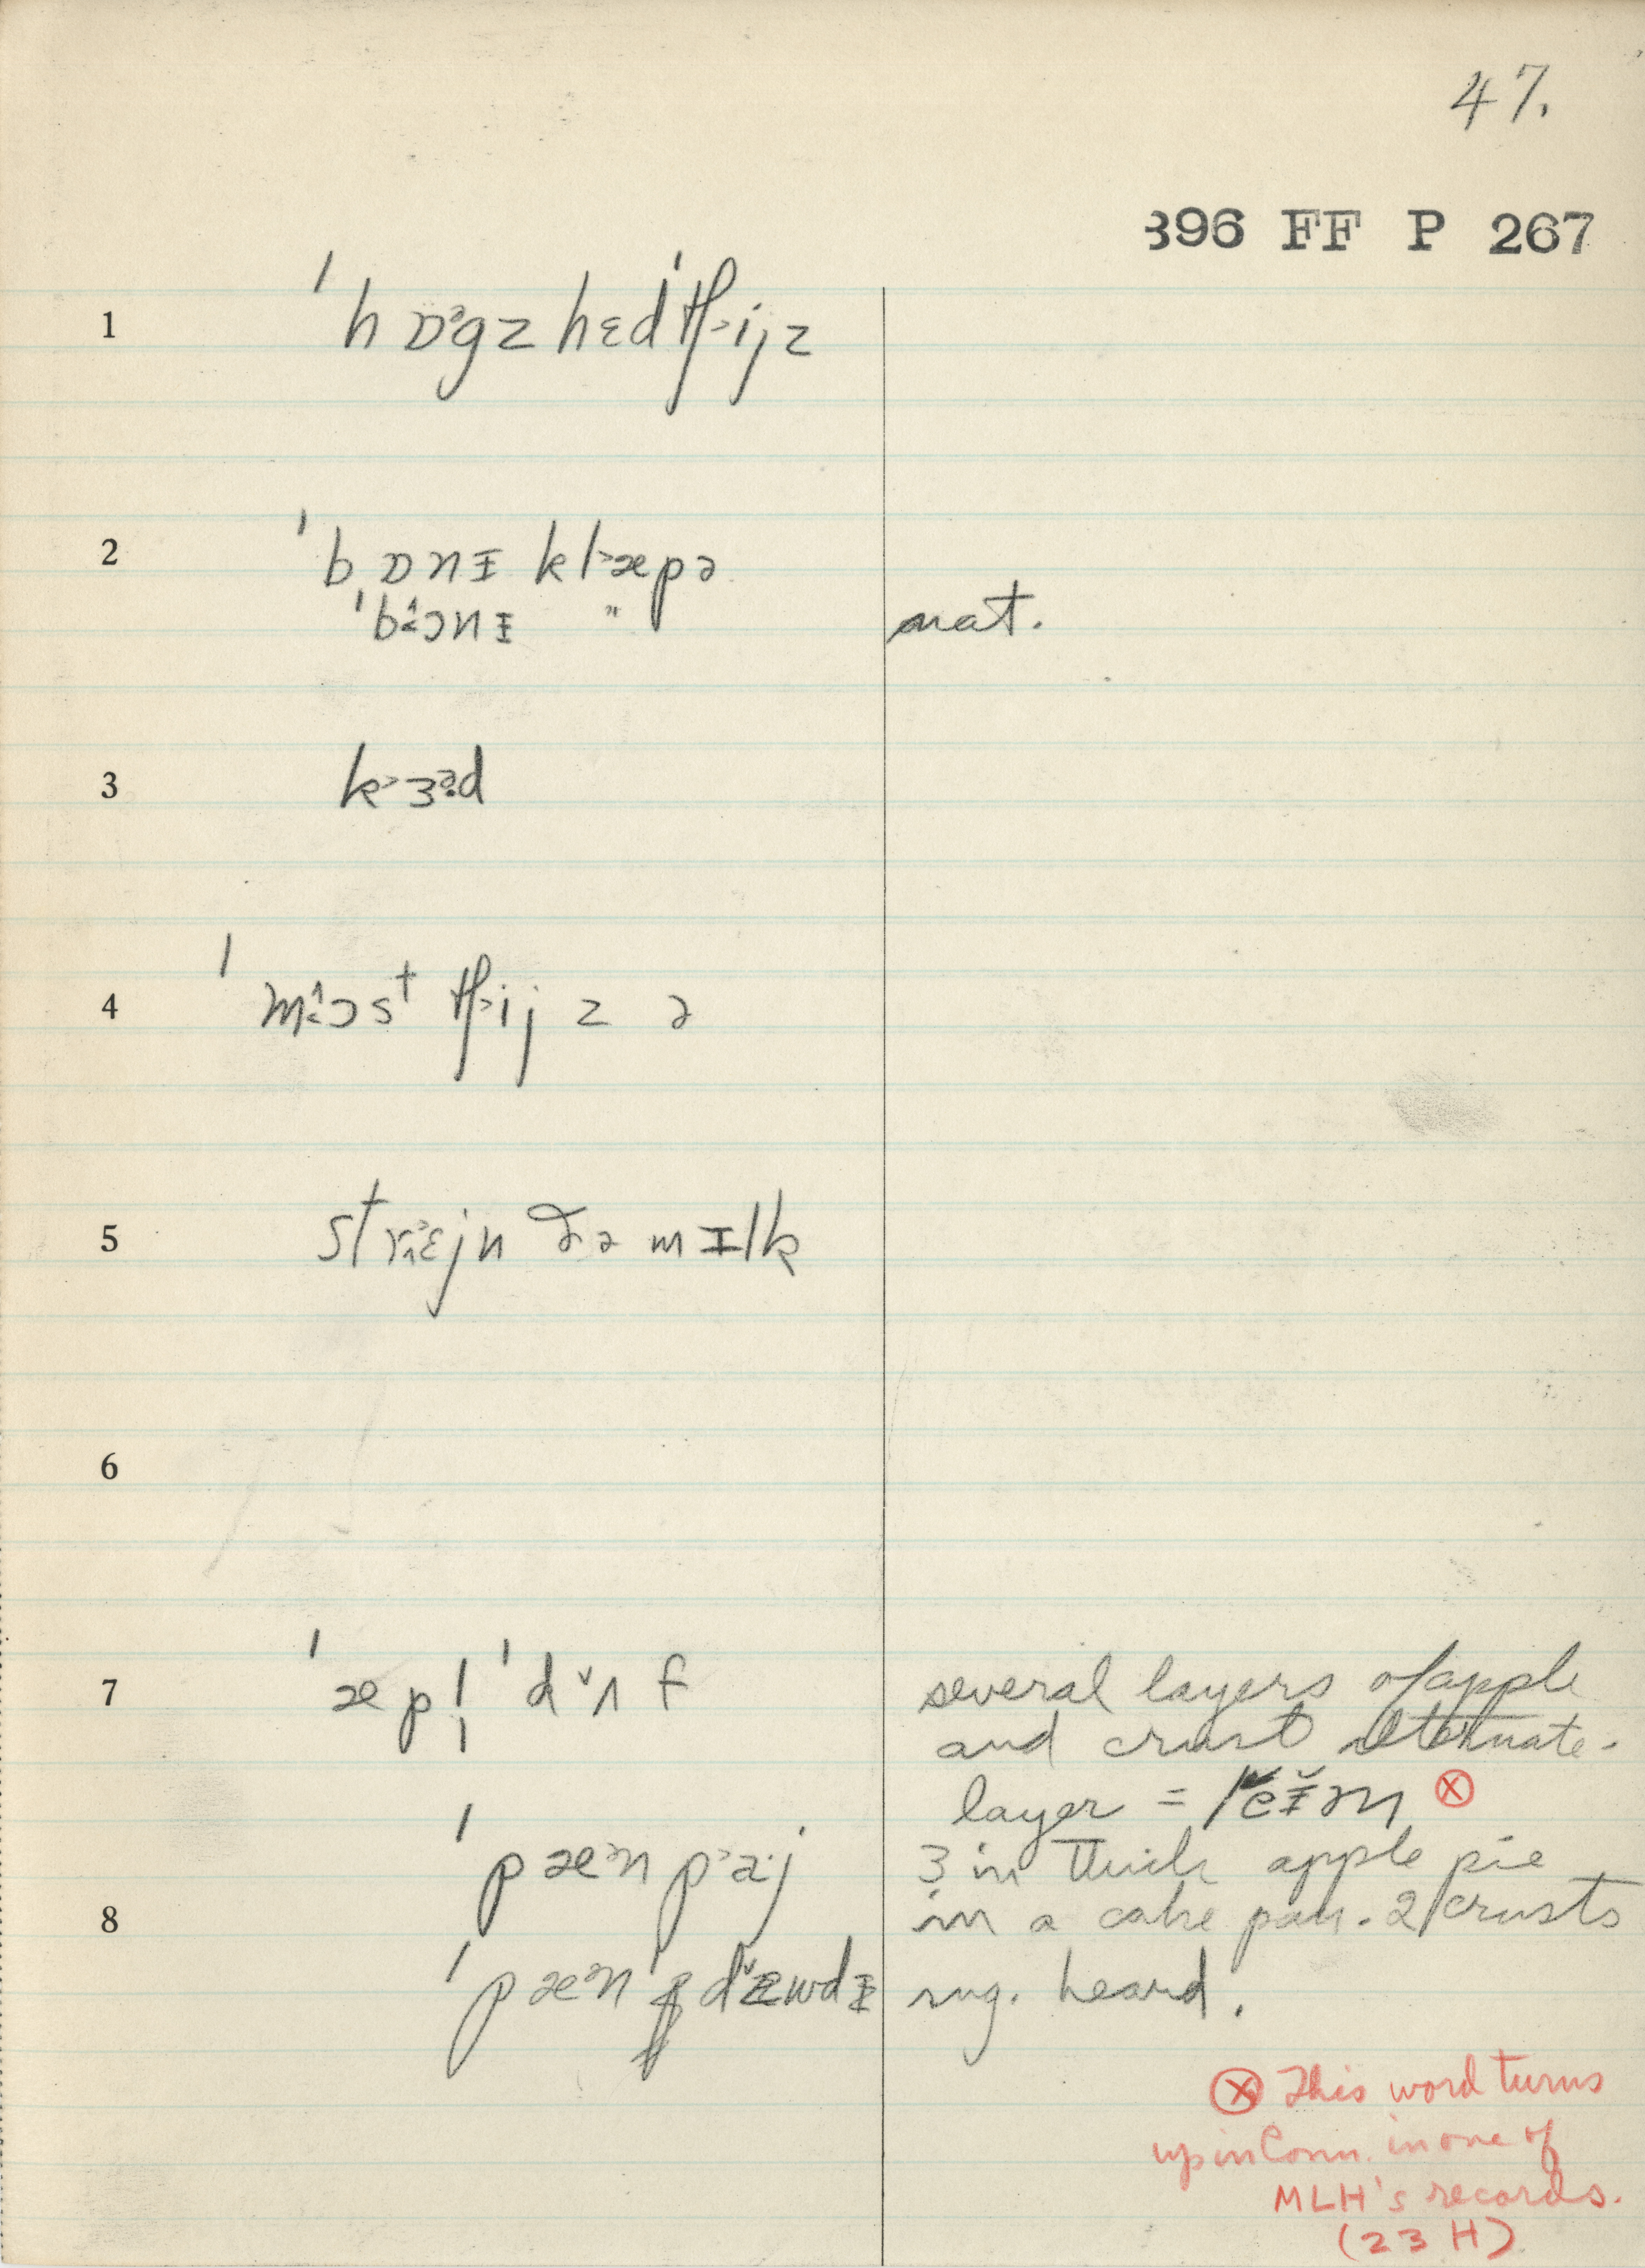 47.
396 FF P 267
1 ˈhɒᵊgz hɛdˈtʃ˃ijz
2 ˈbɒnɪ kl˃æpə
ˈbɔnɪ " nat.
3 k˃ɜᵊd
4 ˈmɔst tʃ˃ij z ə
5 strɛjn ðə mɪlk
6
7 ˈæpl̩ ˈdˇʌf several layers of apple
and crust alternate.
layer = lĕɪ̆m ⓧ
ˈpæᵊn p˃aˑj 3 in thick apple pie
8 in a cake pan. 2 crusts
ˈpæᵊn dˇæwdɪ sug. heard.
ⓧ This word turns
up in Conn. in one of
MLH's records.
(23 H)